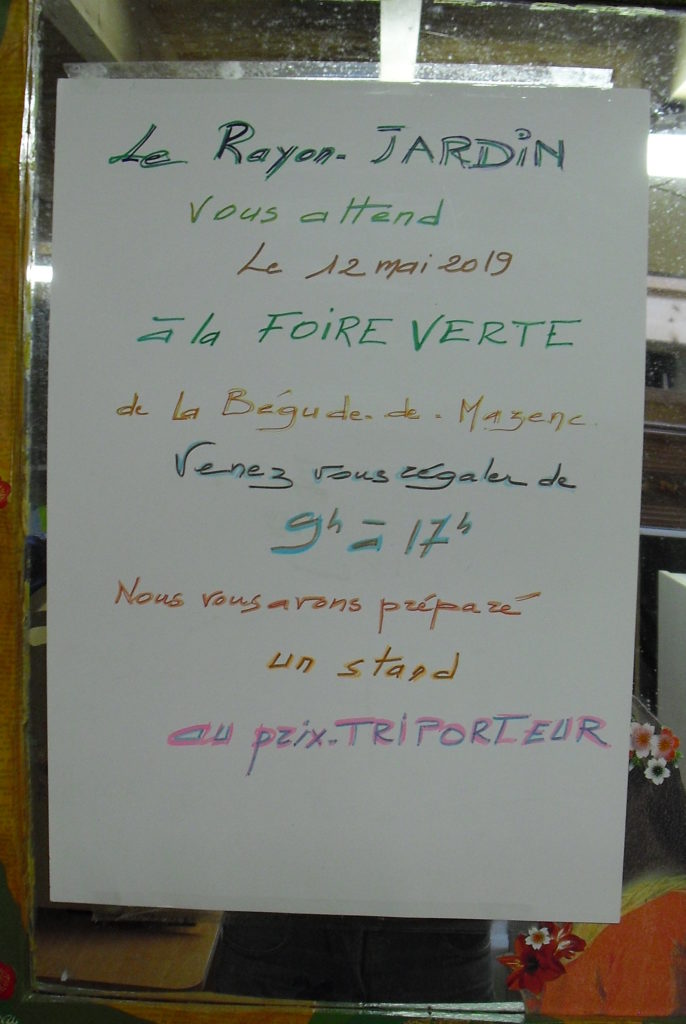 Le Rayon-JARDIN
Vous attend
Le 12 mai 2019
à la FOIRE VERTE
de La Bégude-de-Mazenc
Venez vous régaler de
9h à 17h
Nous vous avons préparé
un stand
au prix-TRIPORTEUR